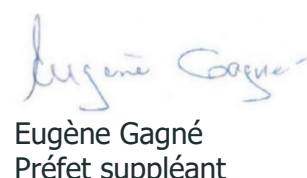 Eugène Gagné
Eugène Gagné
Préfet suppléant